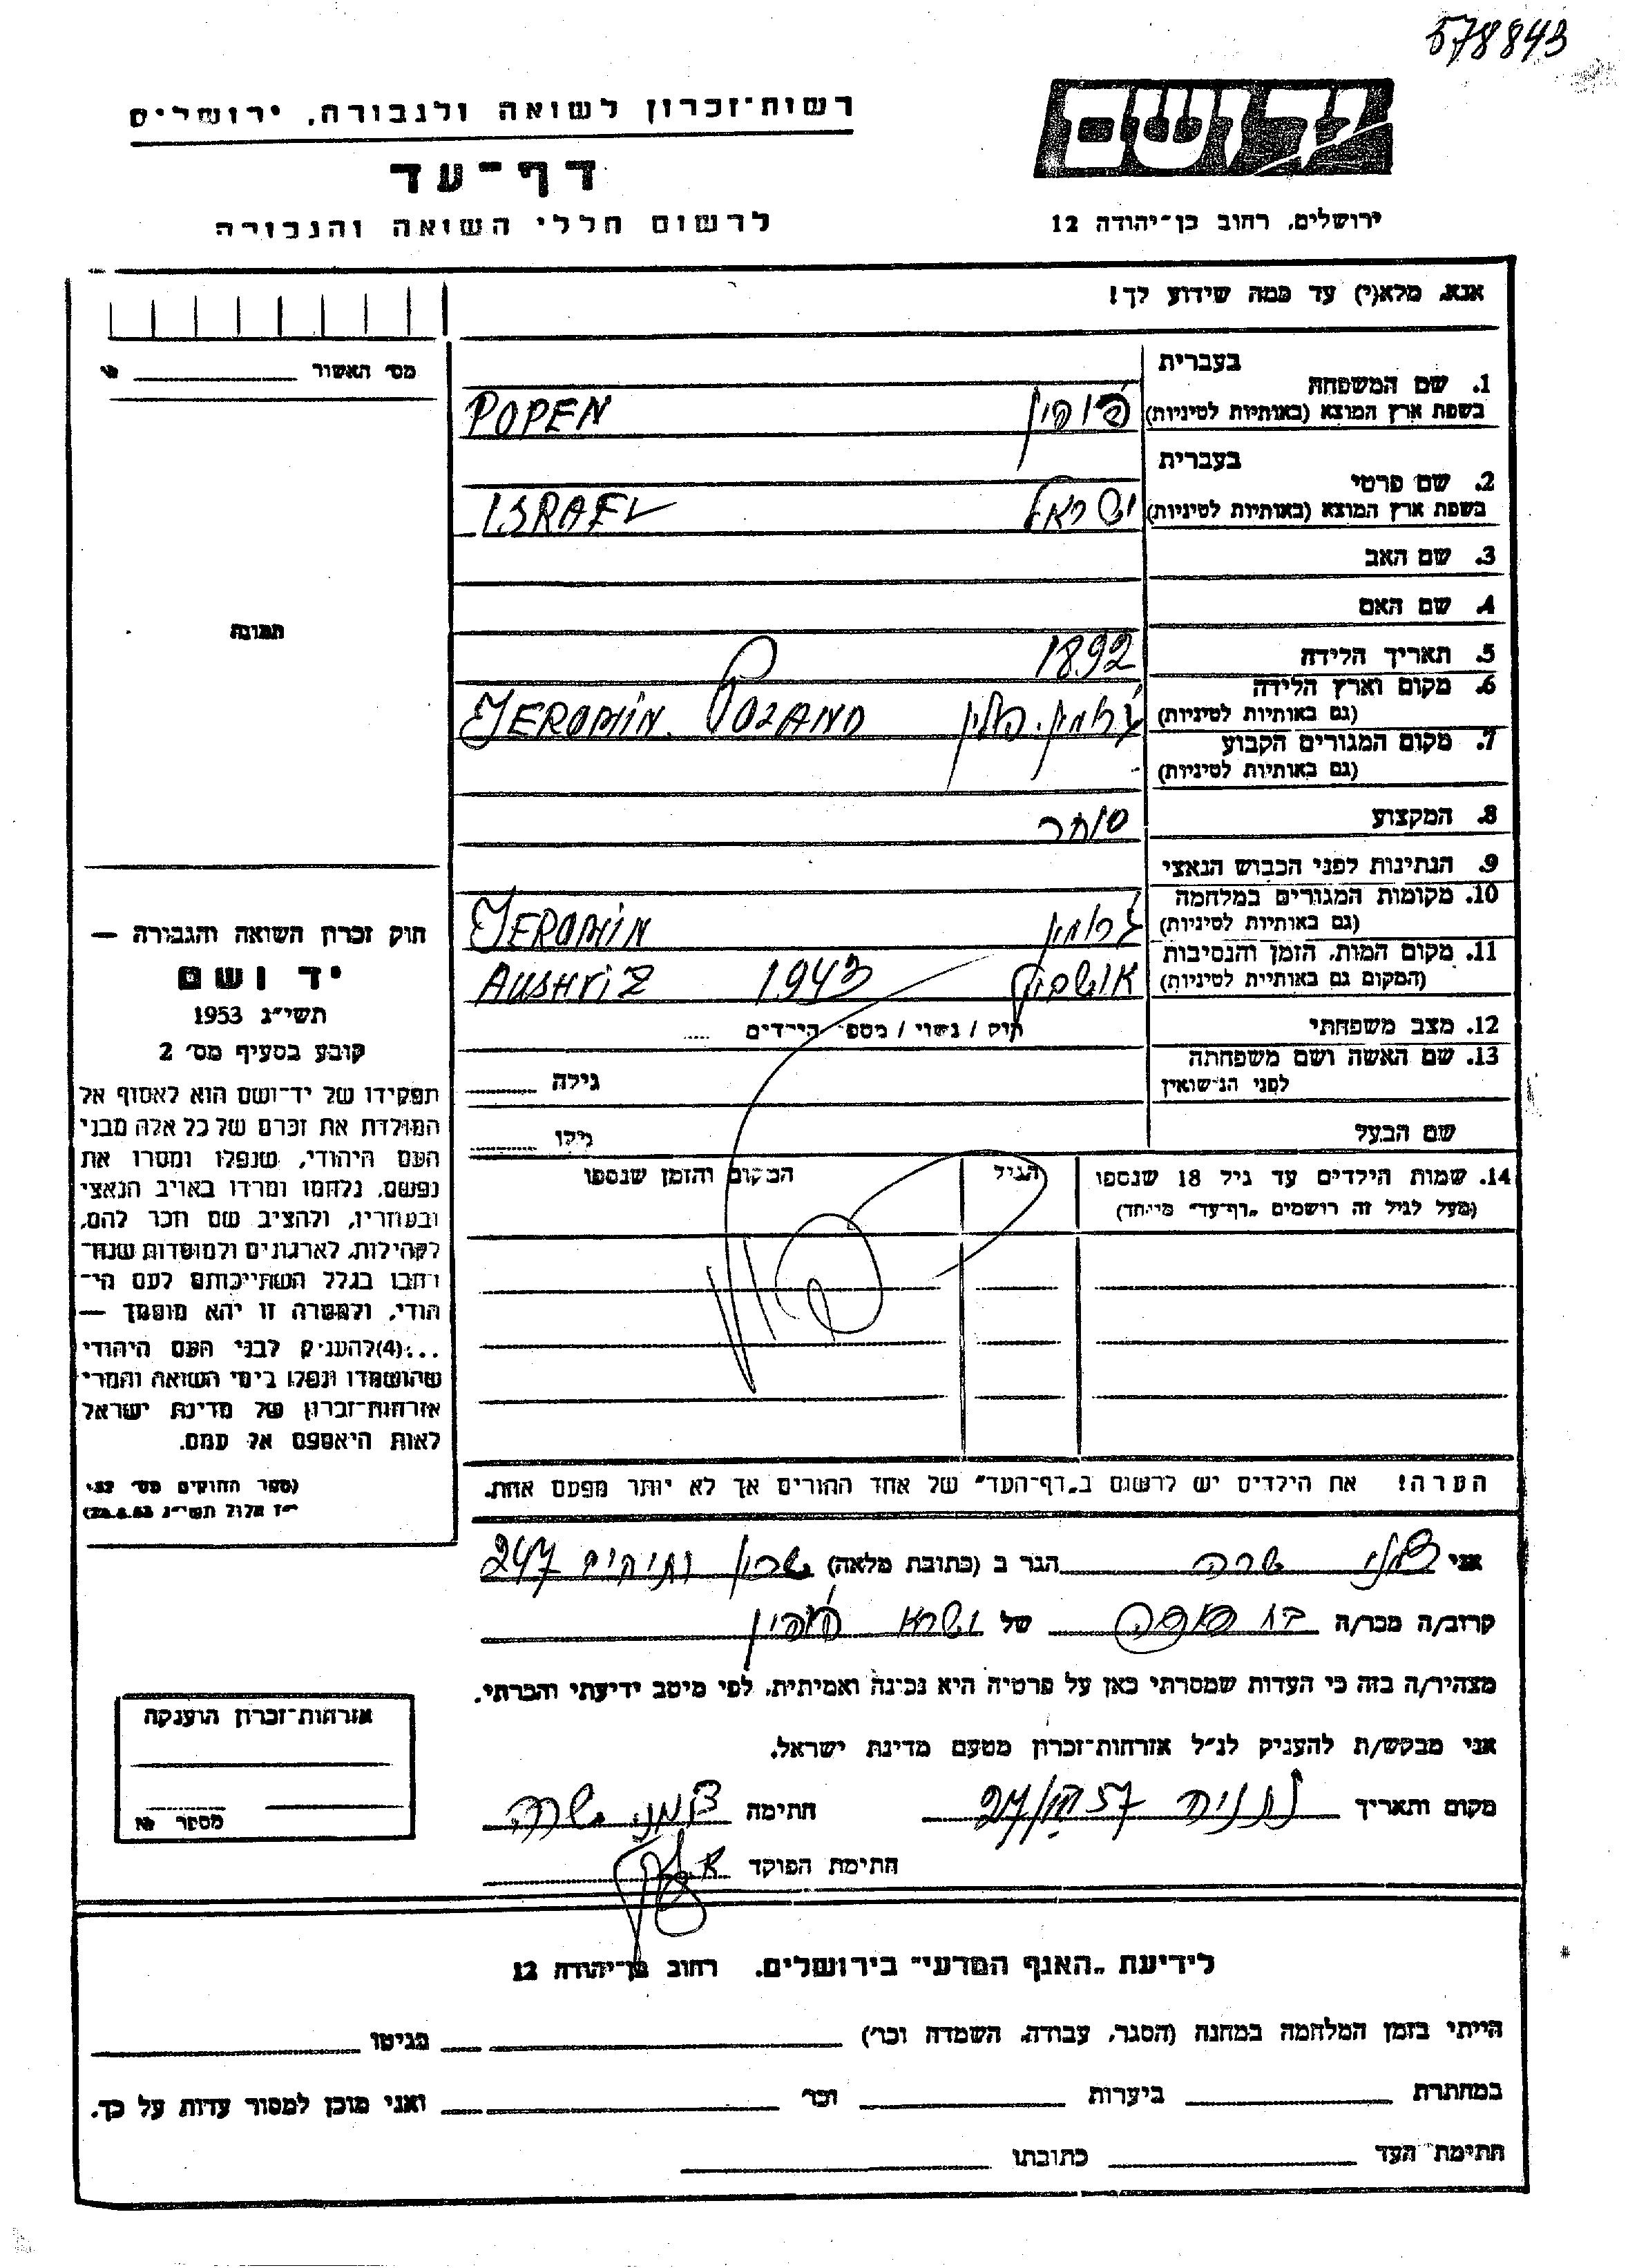 578843
יד ושם
ירושלים, רחוב בן־יהודה 12
רשות־זכרון לשואה ולגבורה, ירושלים
דף־עד
לרשום חללי השואה והגבורה
אנא, מלא(י) עד כמה שידוע לך!
בעברית
1. שם המשפחה
בשפת ארץ המוצא (באותיות לטיניות)
פופן POPEN
בעברית
2. שם פרטי
בשפת ארץ המוצא (באותיות לטיניות)
ישראל ISRAEL
3. שם האב
4. שם האם
5. תאריך הלידה 1892
6. מקום וארץ הלידה
(גם באותיות לטיניות)
ז'רומין. פולין JEROMIN. POLAND
7. מקום המגורים הקבוע
(גם באותיות לטיניות)
8. המקצוע סוחר
9. הנתינות לפני הכבוש הנאצי
10. מקומות המגורים במלחמה
(גם באותיות לטיניות)
ז'רומין JEROMIN
11. מקום המות, הזמן והנסיבות
(המקום גם באותיית לטיניות)
אושביץ 1943 AUSHVIZ
12. מצב משפחתי רווק / נשוי / מספר הילדים .....
13. שם האשה ושם משפחתה
לפני הנישואין
גילה
שם הבעל גילו
14. שמות הילדים עד גיל 18 שנספו
(מעל לגיל זה רושמים „דף־עד" מיוחד)
הגיל
המקום והזמן שנספו
הערה! את הילדים יש לרשום ב„דף־העד" של אחד ההורים אך לא יותר מפעם אחת.
מס׳ האשור №
תמונה
חוק זכרון השואה והגבורה —
יד ושם
תשי״ג 1953
קובע בסעיף מס׳ 2
תפקידו של יד־ושם הוא לאסוף אל
המולדת את זכרם של כל אלה מבני
העם היהודי, שנפלו ומסרו את
נפשם, נלחמו ומרדו באויב הנאצי
ובעוזריו, ולהציב שם וזכר להם,
לקהילות, לארגונים ולמוסדות שנח־
רבו בגלל השתייכותם לעם הי־
הודי, ולמטרה זו יהא מוסמך —
...(4)להעניק לבני העם היהודי
שהושמדו ונפלו בימי השואה והמרי
אזרחות־זכרון של מדינת ישראל
לאות היאספם אל עמם.
(ספר החוקים מס׳ 132
י״ז אלול תשי״ג 28.8.53)
אני שרה הגר ב (כתובת מלאה) ותיקים 247
קרוב/ה מכר/ה של פופן
מצהיר/ה בזה כי העדות שמסרתי כאן על פרטיה היא נכונה ואמיתית, לפי מיטב ידיעתי והכרתי.
אני מבקש/ת להעניק לנ״ל אזרחות־זכרון מטעם מדינת ישראל.
מקום ותאריך נתניה חתימה שרה
חתימת הפוקד
אזרחות־זכרון הוענקה
מספר №
לידיעת „האגף המדעי" בירושלים. רחוב בן־יהודה 12
הייתי בזמן המלחמה במחנה (הסגר, עבודה, השמדה וכו׳) בגיטו
במחתרת ביערות וכו׳ ואני מוכן למסור עדות על כך.
חתימת העד כתובתו